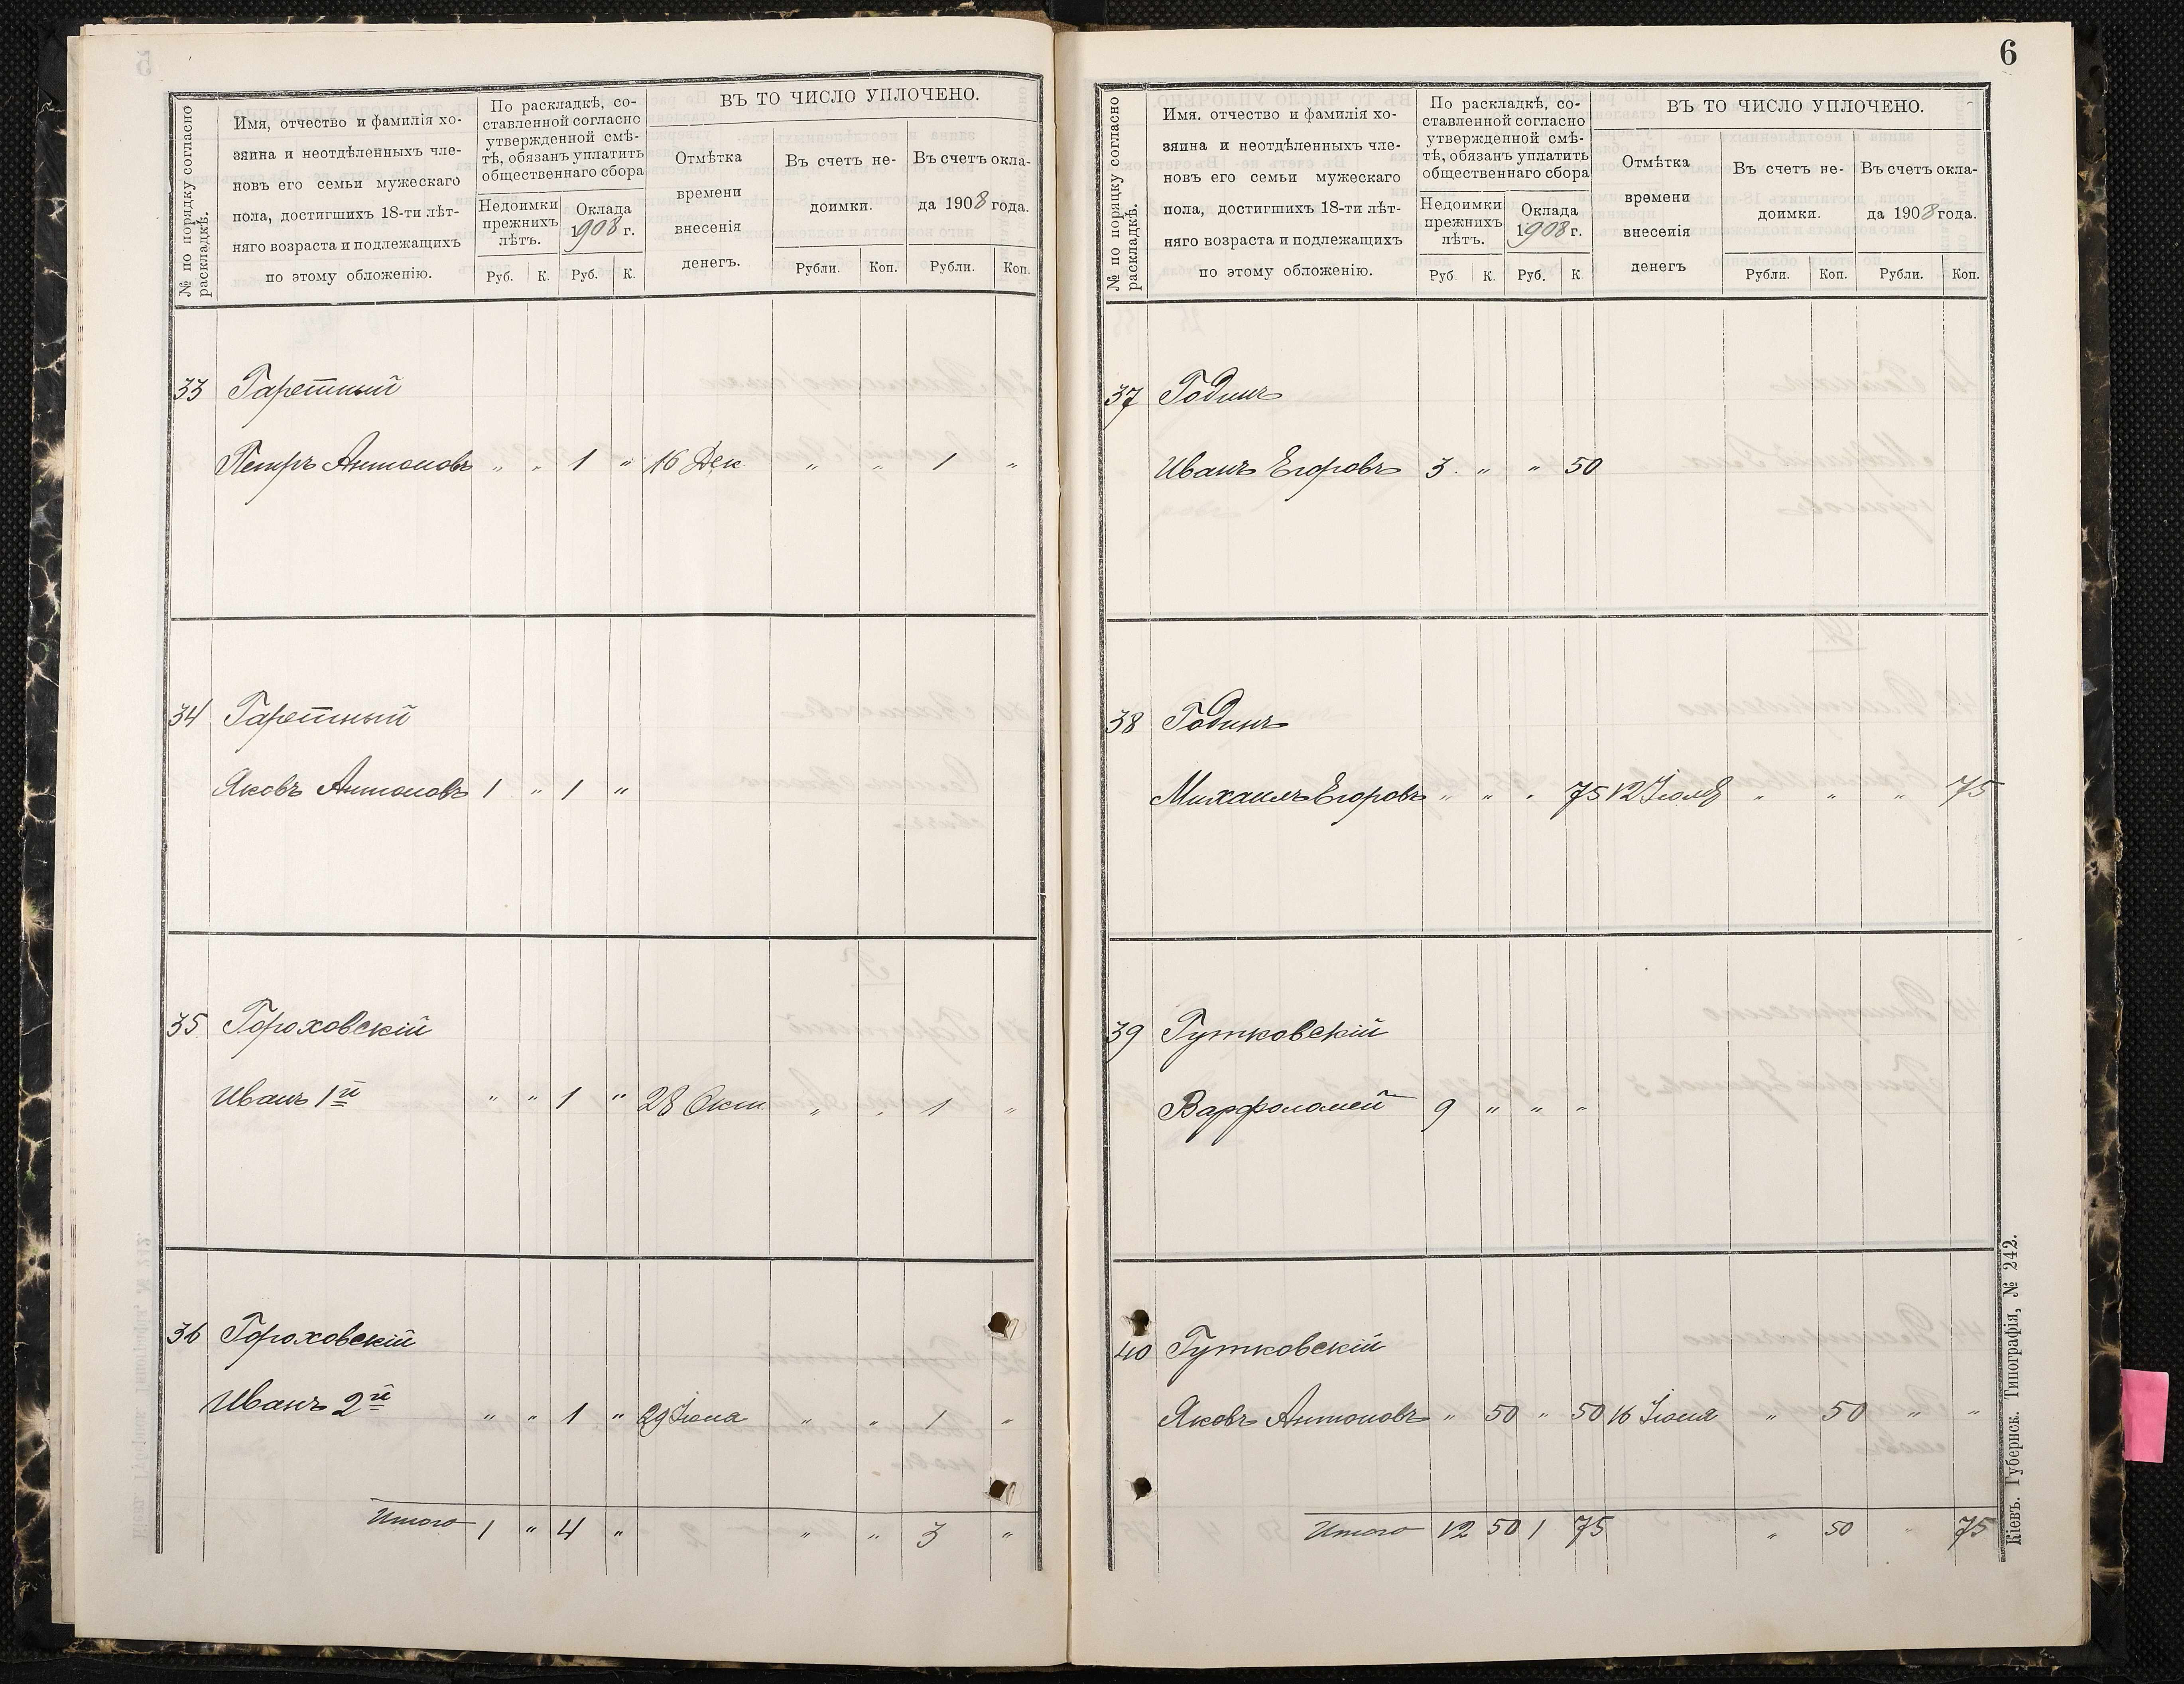 6
№ по порядку согласно раскладкѣ.
Имя, отчество и фамилія хо-
зяина и неотдѣленныхъ чле-
новъ его семьи мужескаго
пола, достигшихъ 18-ти лѣт-
няго возраста и подлежащихъ
по этому обложенію.
По раскладкѣ, со-
ставленной согласно
утвержденной смѣ-
тѣ, обязанъ уплатить
общественнаго сбора
Недоимки
прежнихъ
лѣтъ.
Оклада
1908 г.
Руб. К. Руб. К.
ВЪ ТО ЧИСЛО УПЛОЧЕНО.
Отмѣтка
времени
внесенія
денегъ.
Въ счетъ не-
доимки.
Въ счетъ окла-
да 1908 года.
Рубли. Коп. Рубли. Коп.
33 Гаретный
Петръ Антоновъ " " 1 " 16 Дек. " " 1 "
34 Гаретный
Яковъ Антоновъ 1 " 1 "
35 Гороховскій
Иванъ 1й " " 1 " 28 Окт. " " 1 "
36 Гороховскій
Иванъ 2й " " 1 " 29 Іюня " " 1 "
Итого 1 " 4 " " " 3 "
№ по порядку согласно раскладкѣ.
Имя. отчество и фамилія хо-
зяина и неотдѣленныхъ чле-
новъ его семьи мужескаго
пола, достигшихъ 18-ти лѣт-
няго возраста и подлежащихъ
по этому обложенію.
По раскладкѣ, со-
ставленной согласно
утвержденной смѣ-
тѣ, обязанъ уплатить
общественнаго сбора
Недоимки
прежнихъ
лѣтъ.
Оклада
1908 г.
Руб. К. Руб. К
ВЪ ТО ЧИСЛО УПЛОЧЕНО.
Отмѣтка
времени
внесенія
денегъ
Въ счетъ не-
доимки.
Въ счетъ окла-
да 1908 года.
Рубли. Коп. Рубли. Коп.
37 Годинъ
Иванъ Егоровъ 3. " " 50
38 Годинъ
Михаилъ Егоровъ " " " 75 12 Іюля " " " 75
39 Гутковскій
Варфоломей 9 " " "
40 Гутковскій
Яковъ Антоновъ " 50 " 50 16 Іюля " 50 " "
Итого 12 50 1 75 " 50 " 75
Кіевъ. Губернск. Типографія, № 242.